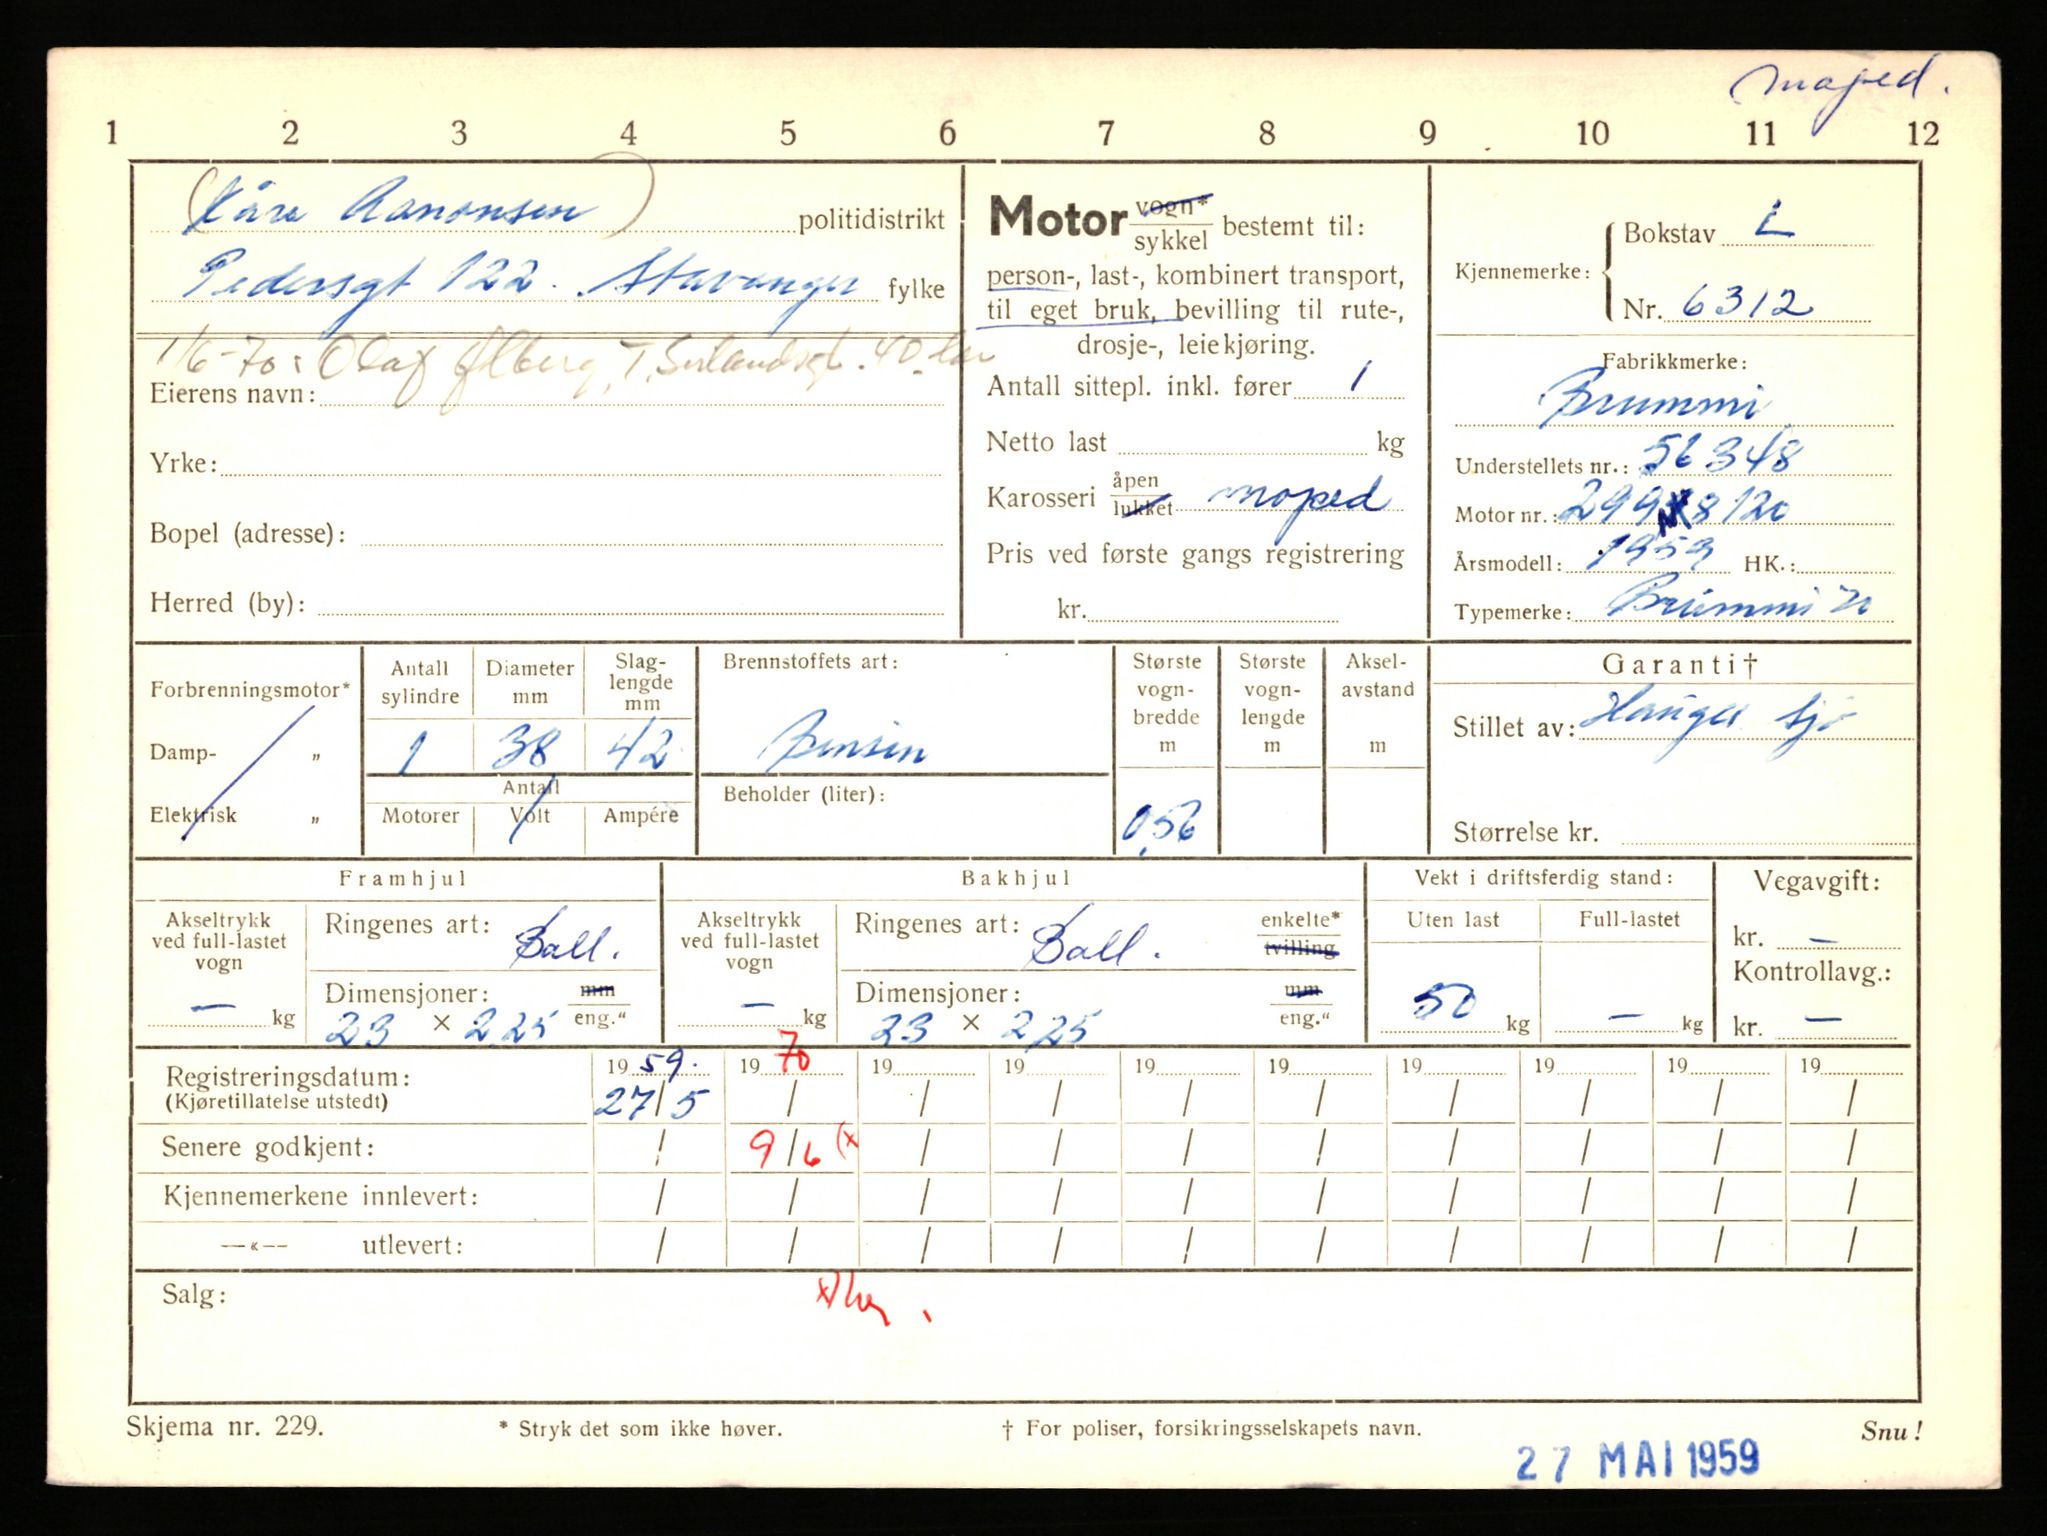 moped.
1 2 3 4 5 6 7 8 9 10 11 12
(Kåre Aanonsen) politidistrikt
Pedersgt 122. Stavanger fylke
1/6-70: Olaf Ølberg, T. Sørlandsgt. 40. her
Eierens navn:
Yrke:
Bopel (adresse):
Herred (by):
Motor vogn*/sykkel bestemt til:
person-, last-, kombinert transport,
til eget bruk, bevilling til rute-,
drosje-, leiekjøring.
Antall sittepl. inkl. fører 1
Netto last kg
Karosseri åpen/lukket moped
Pris ved første gangs registrering
kr.
Kjennemerke: Bokstav L
Nr. 6312
Fabrikkmerke:
Brummi
Understellets nr.: 56348
Motor nr.: 299 8120
Årsmodell: 1959 HK.:
Typemerke: Brummi
Forbrenningsmotor*
Damp- „
Elektrisk „
Antall sylindre 1
Diameter mm 38
Slag-lengde mm 42
Antall
Motorer Volt Ampére
Brennstoffets art:
Bensin
Beholder (liter):
Største vogn-bredde m
0,56
Største vogn-lengde m
Aksel-avstand m
Garanti†
Stillet av:
Størrelse kr.
Framhjul
Akseltrykk ved full-lastet vogn
— kg
Ringenes art: Ball.
Dimensjoner: mm/eng."
23 × 2,25
Bakhjul
Akseltrykk ved full-lastet vogn
— kg
Ringenes art: Ball. enkelte* tvilling
Dimensjoner: mm/eng."
23 × 2,25
Vekt i driftsferdig stand:
Uten last Full-lastet
50 kg — kg
Vegavgift:
kr. —
Kontrollavg.:
kr. —
19 59. 19 70 19 19 19 19 19 19 19 19
Registreringsdatum: 27/5 / / / / / / / / /
(Kjøretillatelse utstedt)
Senere godkjent: / 9/6 (x / / / / / / / /
Kjennemerkene innlevert: / / / / / / / / / /
—«— utlevert: / / / / / / / / / /
Salg:
Skjema nr. 229. * Stryk det som ikke høver. † For poliser, forsikringsselskapets navn. Snu!
27 MAI 1959